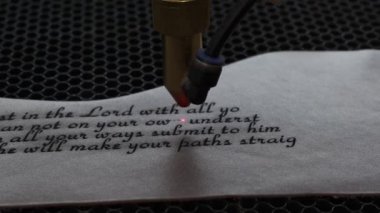 st in the Lord with all yo
an not on your ow underst
all your ways submit to him
he will make your paths straig